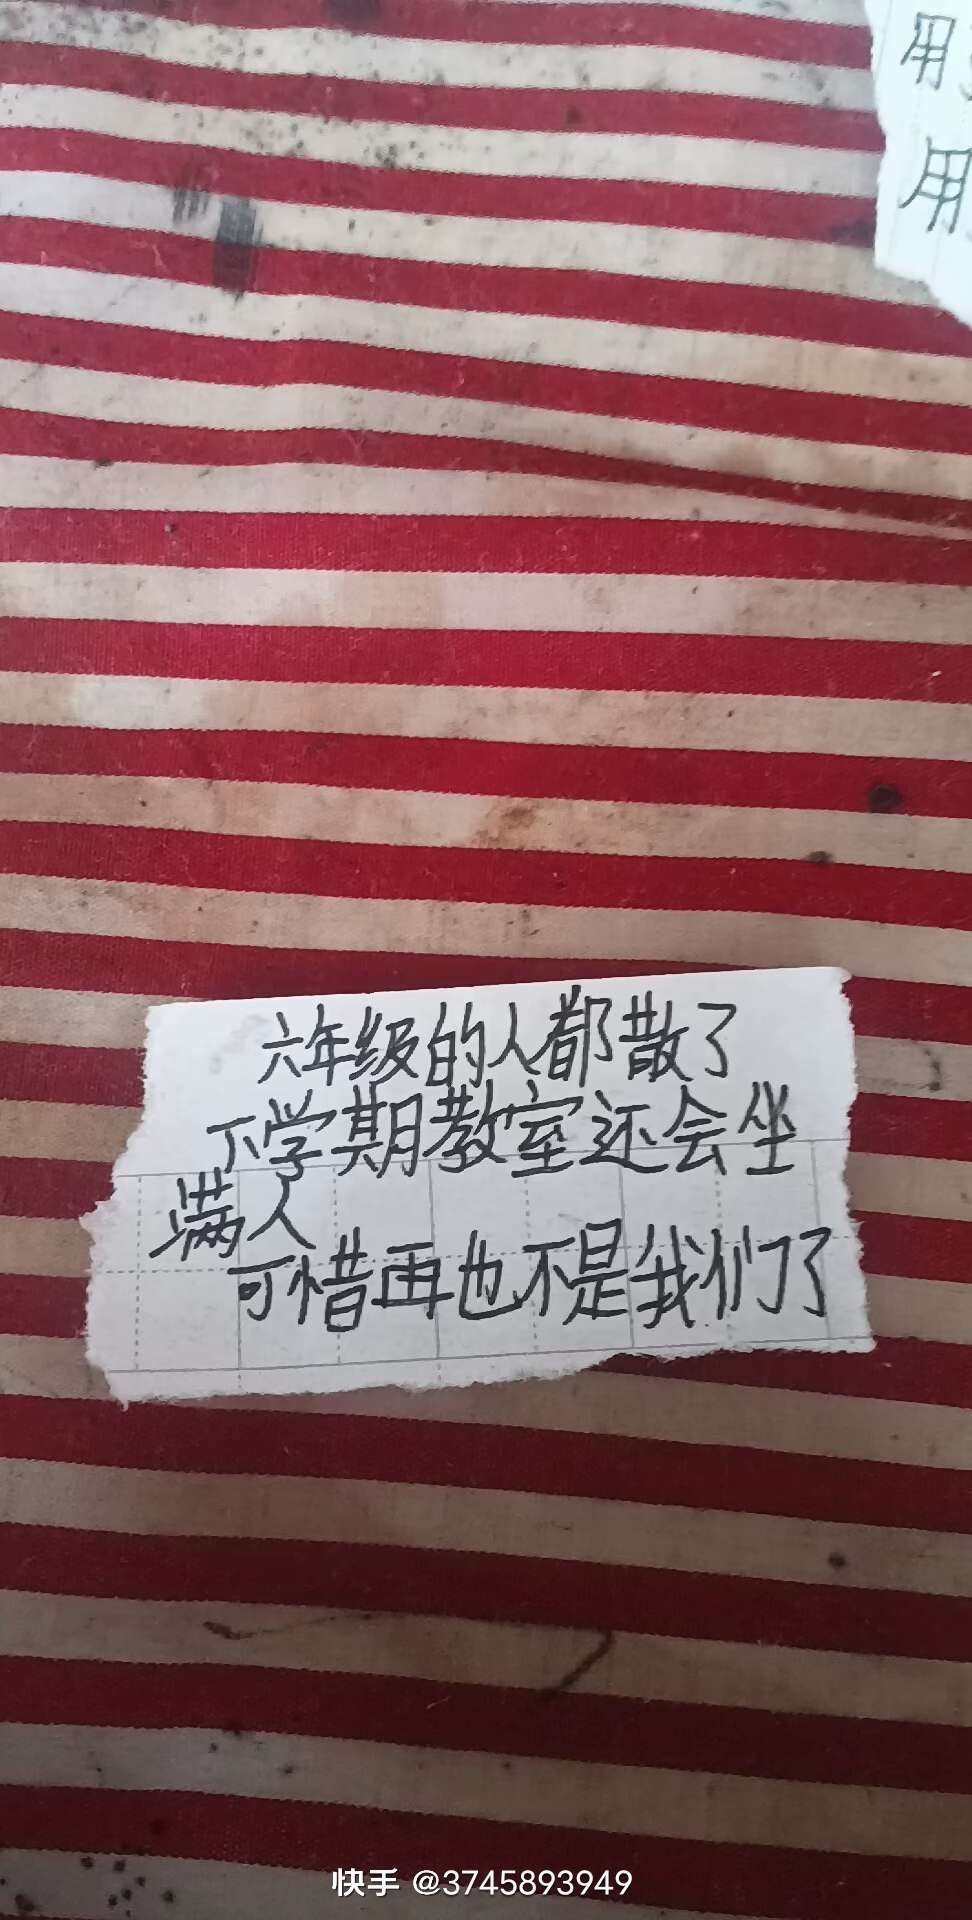 用
用
六年级的人都散了
下学期教室还会坐
满人
可惜再也不是我们了
快手 @3745893949